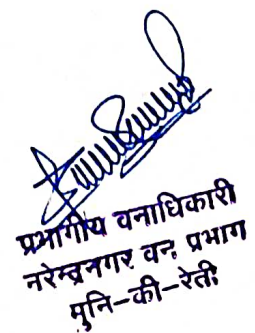 प्रभागीय वनाधिकारी
नरेन्द्रनगर वन प्रभाग
मुनि-की-रेती